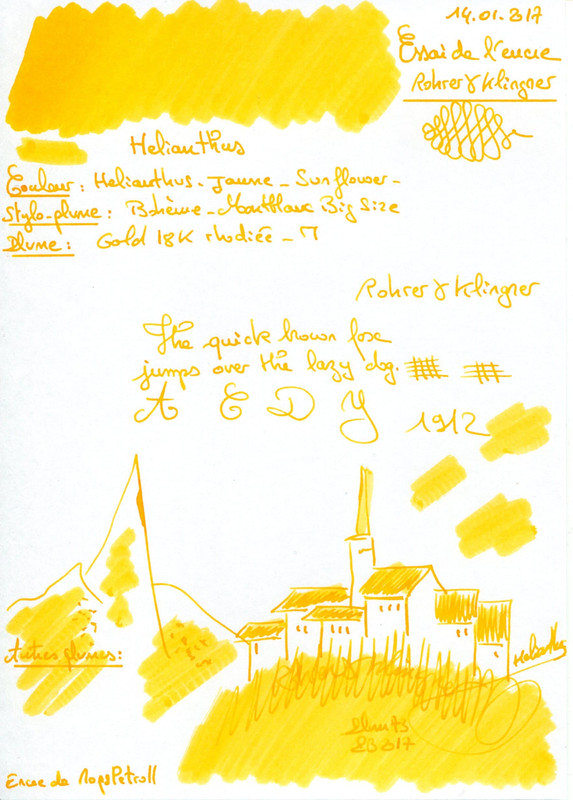 14.01.2017
Essai de l'encre
Rohrer & Klingner
Helianthus
Couleur : Helianthus - Jaune - Sunflower -
Stylo-plume : Bohème - Montblanc Big Size
Plume : Gold 18K rhodiée - M
Rohrer & Klingner
The quick brown fox
jumps over the lazy dog.
A E D Y 1912
Autres plumes :
Helianthus
Rohrer & Klingner
2017
Encre de